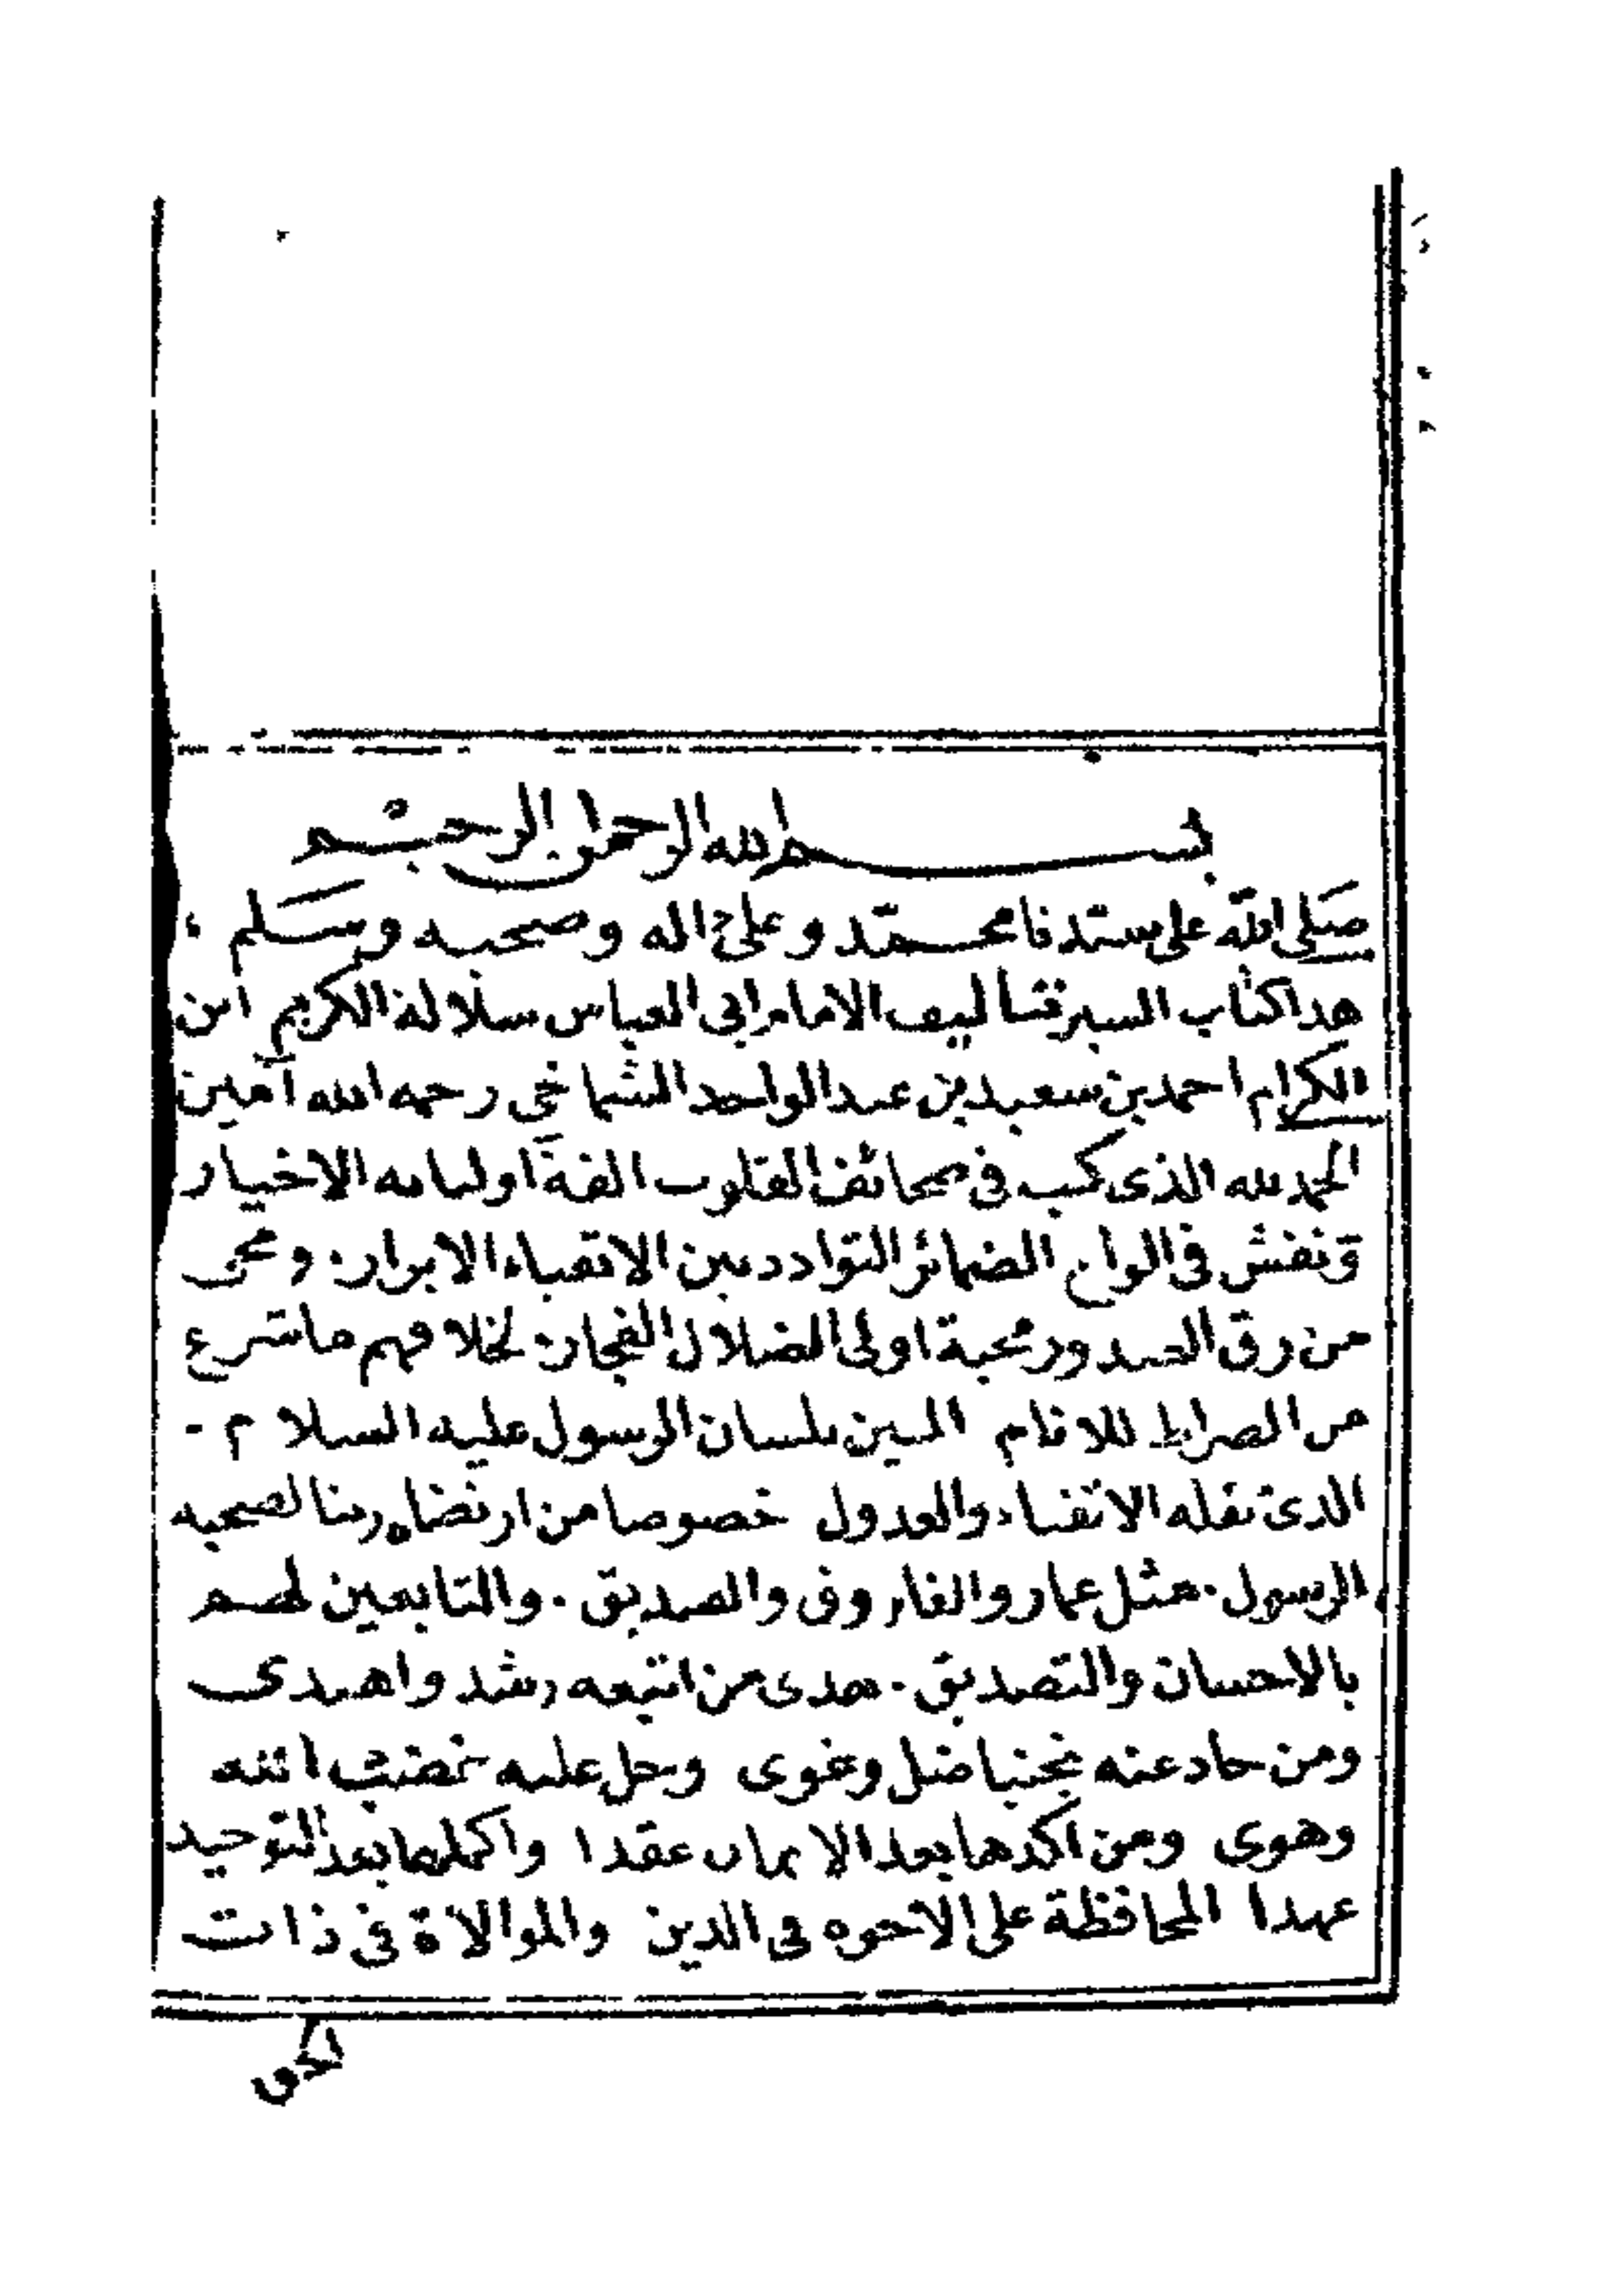 بسم الله الرحمن الرحيم
صلى الله على سيدنا محمد وعلى اله وصحبه وسلم
هذا كتاب السير تساليف الامام ابي العباس سلالة الكريم ابن
الكرام احمد بن سعيد بن عبد الواحد الشماخي رحمه الله آمين
الحمد لله الذى كتب فى صحائف القلوب الفة اوليائه الاخيار
ونقش فى الواح الضمائر التوادد بين الاتقياء الابرار. ومحى
من رق الصدور محبة اولى الضلال الفجار. لخلافهم ما شرع
من الصراط للانام المبين بلسان الرسول عليه السلام -
الذى نقله الاتقياء والعدول خصوصا من ارتضاه ربنا لصحبه
الرسول. مثل عمار والفاروق والصديق. والتابعين لهم
بالاحسان والتصديق. هدى من اتبعه رشد واهتدى
ومن حاد عنه تجنبا ضل وغوى وحل عليه غضب الله
وهوى ومن اكدها بعد الايمان عقدا واكملها بعد التوحيد
عهدا المحافظة على الاخوه فى الدين والموالاة فى ذات
الحق